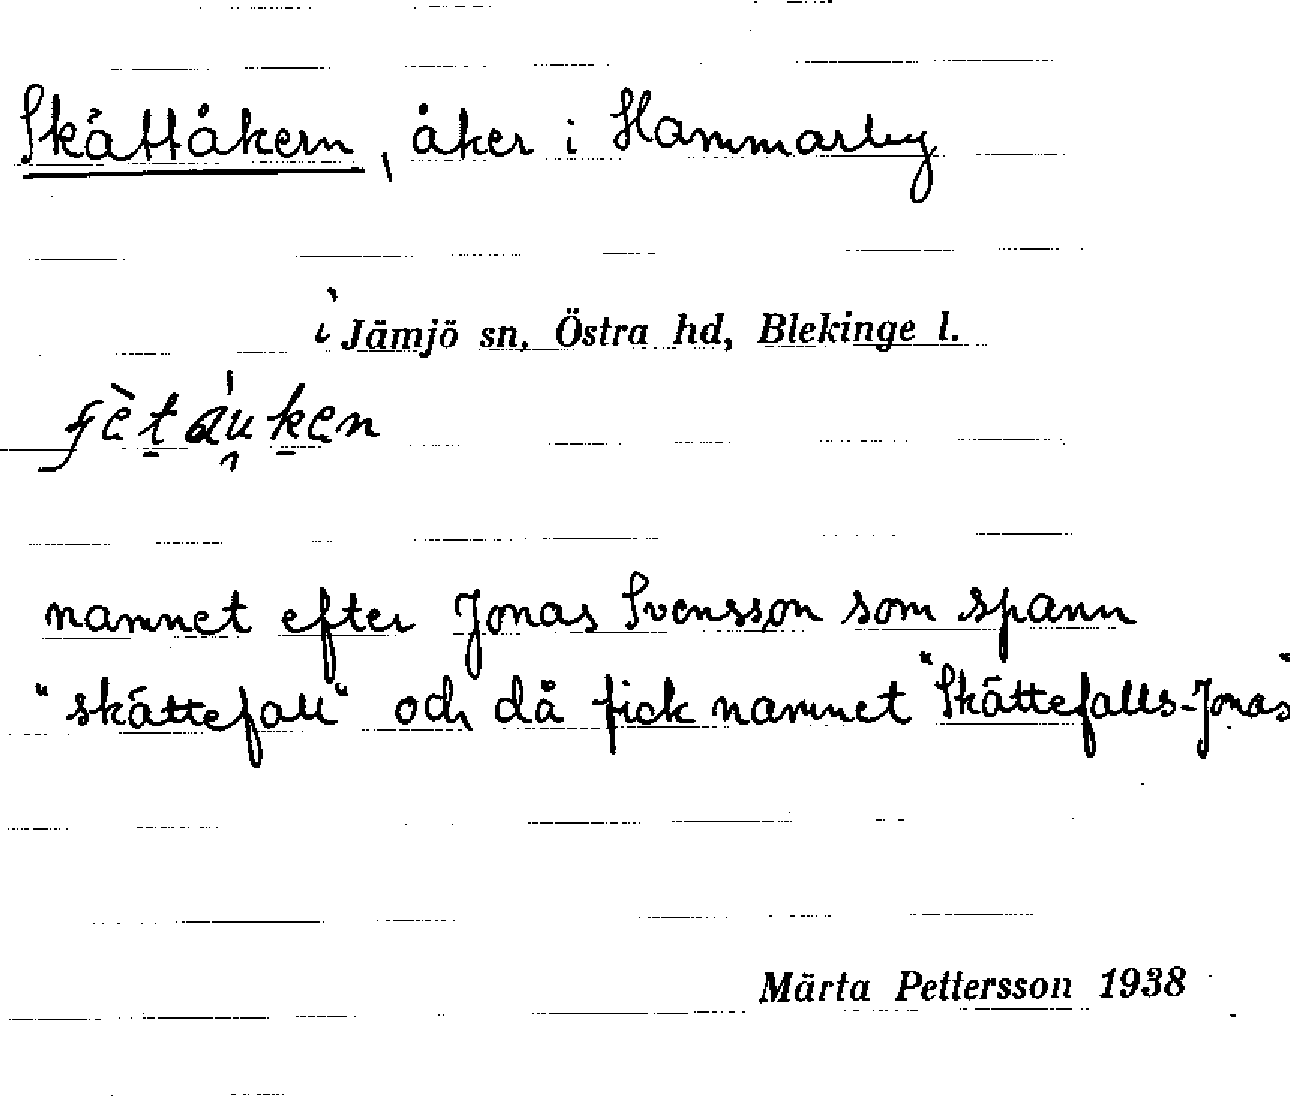 Skättåkern, åker i Hammarby
i Jämjö sn, Östra hd, Blekinge l.
namnet efter Jonas Svensson som spann
"skättefall" och då fick namnet "Skättefalls-Jonas"
Märta Pettersson 1938